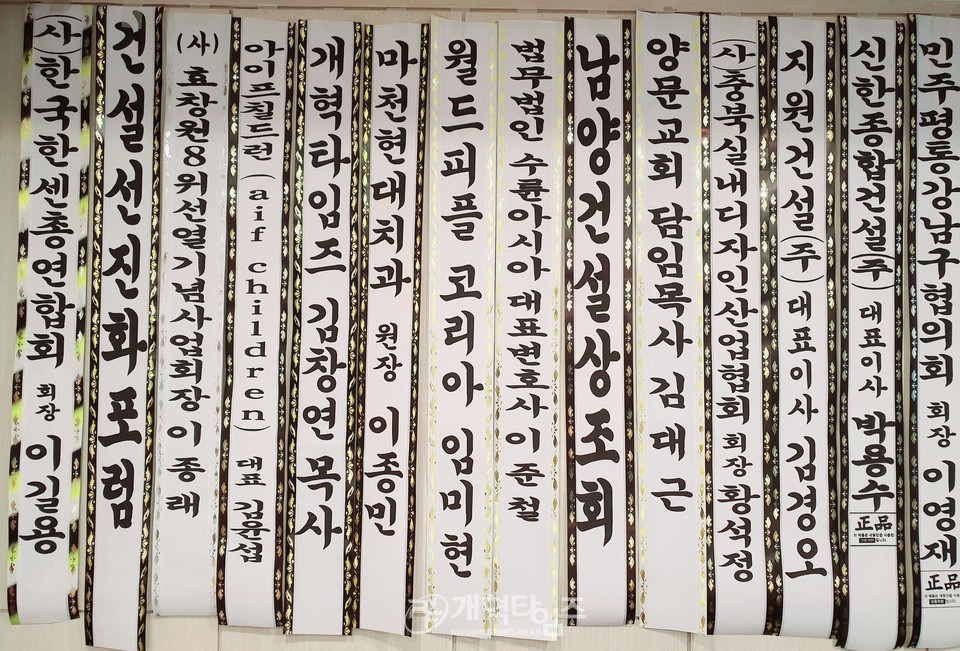 (사)한국한센총연합회 회장 이길용
건설선진화포럼
(사) 효창원8위선열기념사업회장 이종래
아이프칠드런(aif children) 대표 김윤섭
개혁타임즈 김창연 목사
마천현대치과 원장 이종민
월드피플 코리아 임미현
법무법인 수륜아시아 대표변호사 이준철
남양건설상조회
양문교회 담임목사 김대근
(사)충북실내디자인산업협회 회장 황석정
지원건설(주) 대표이사 김경오
신한종합건설(주) 대표이사 박용수
正品
민주평통강남구협의회 회장 이영재
正品
개혁타임즈